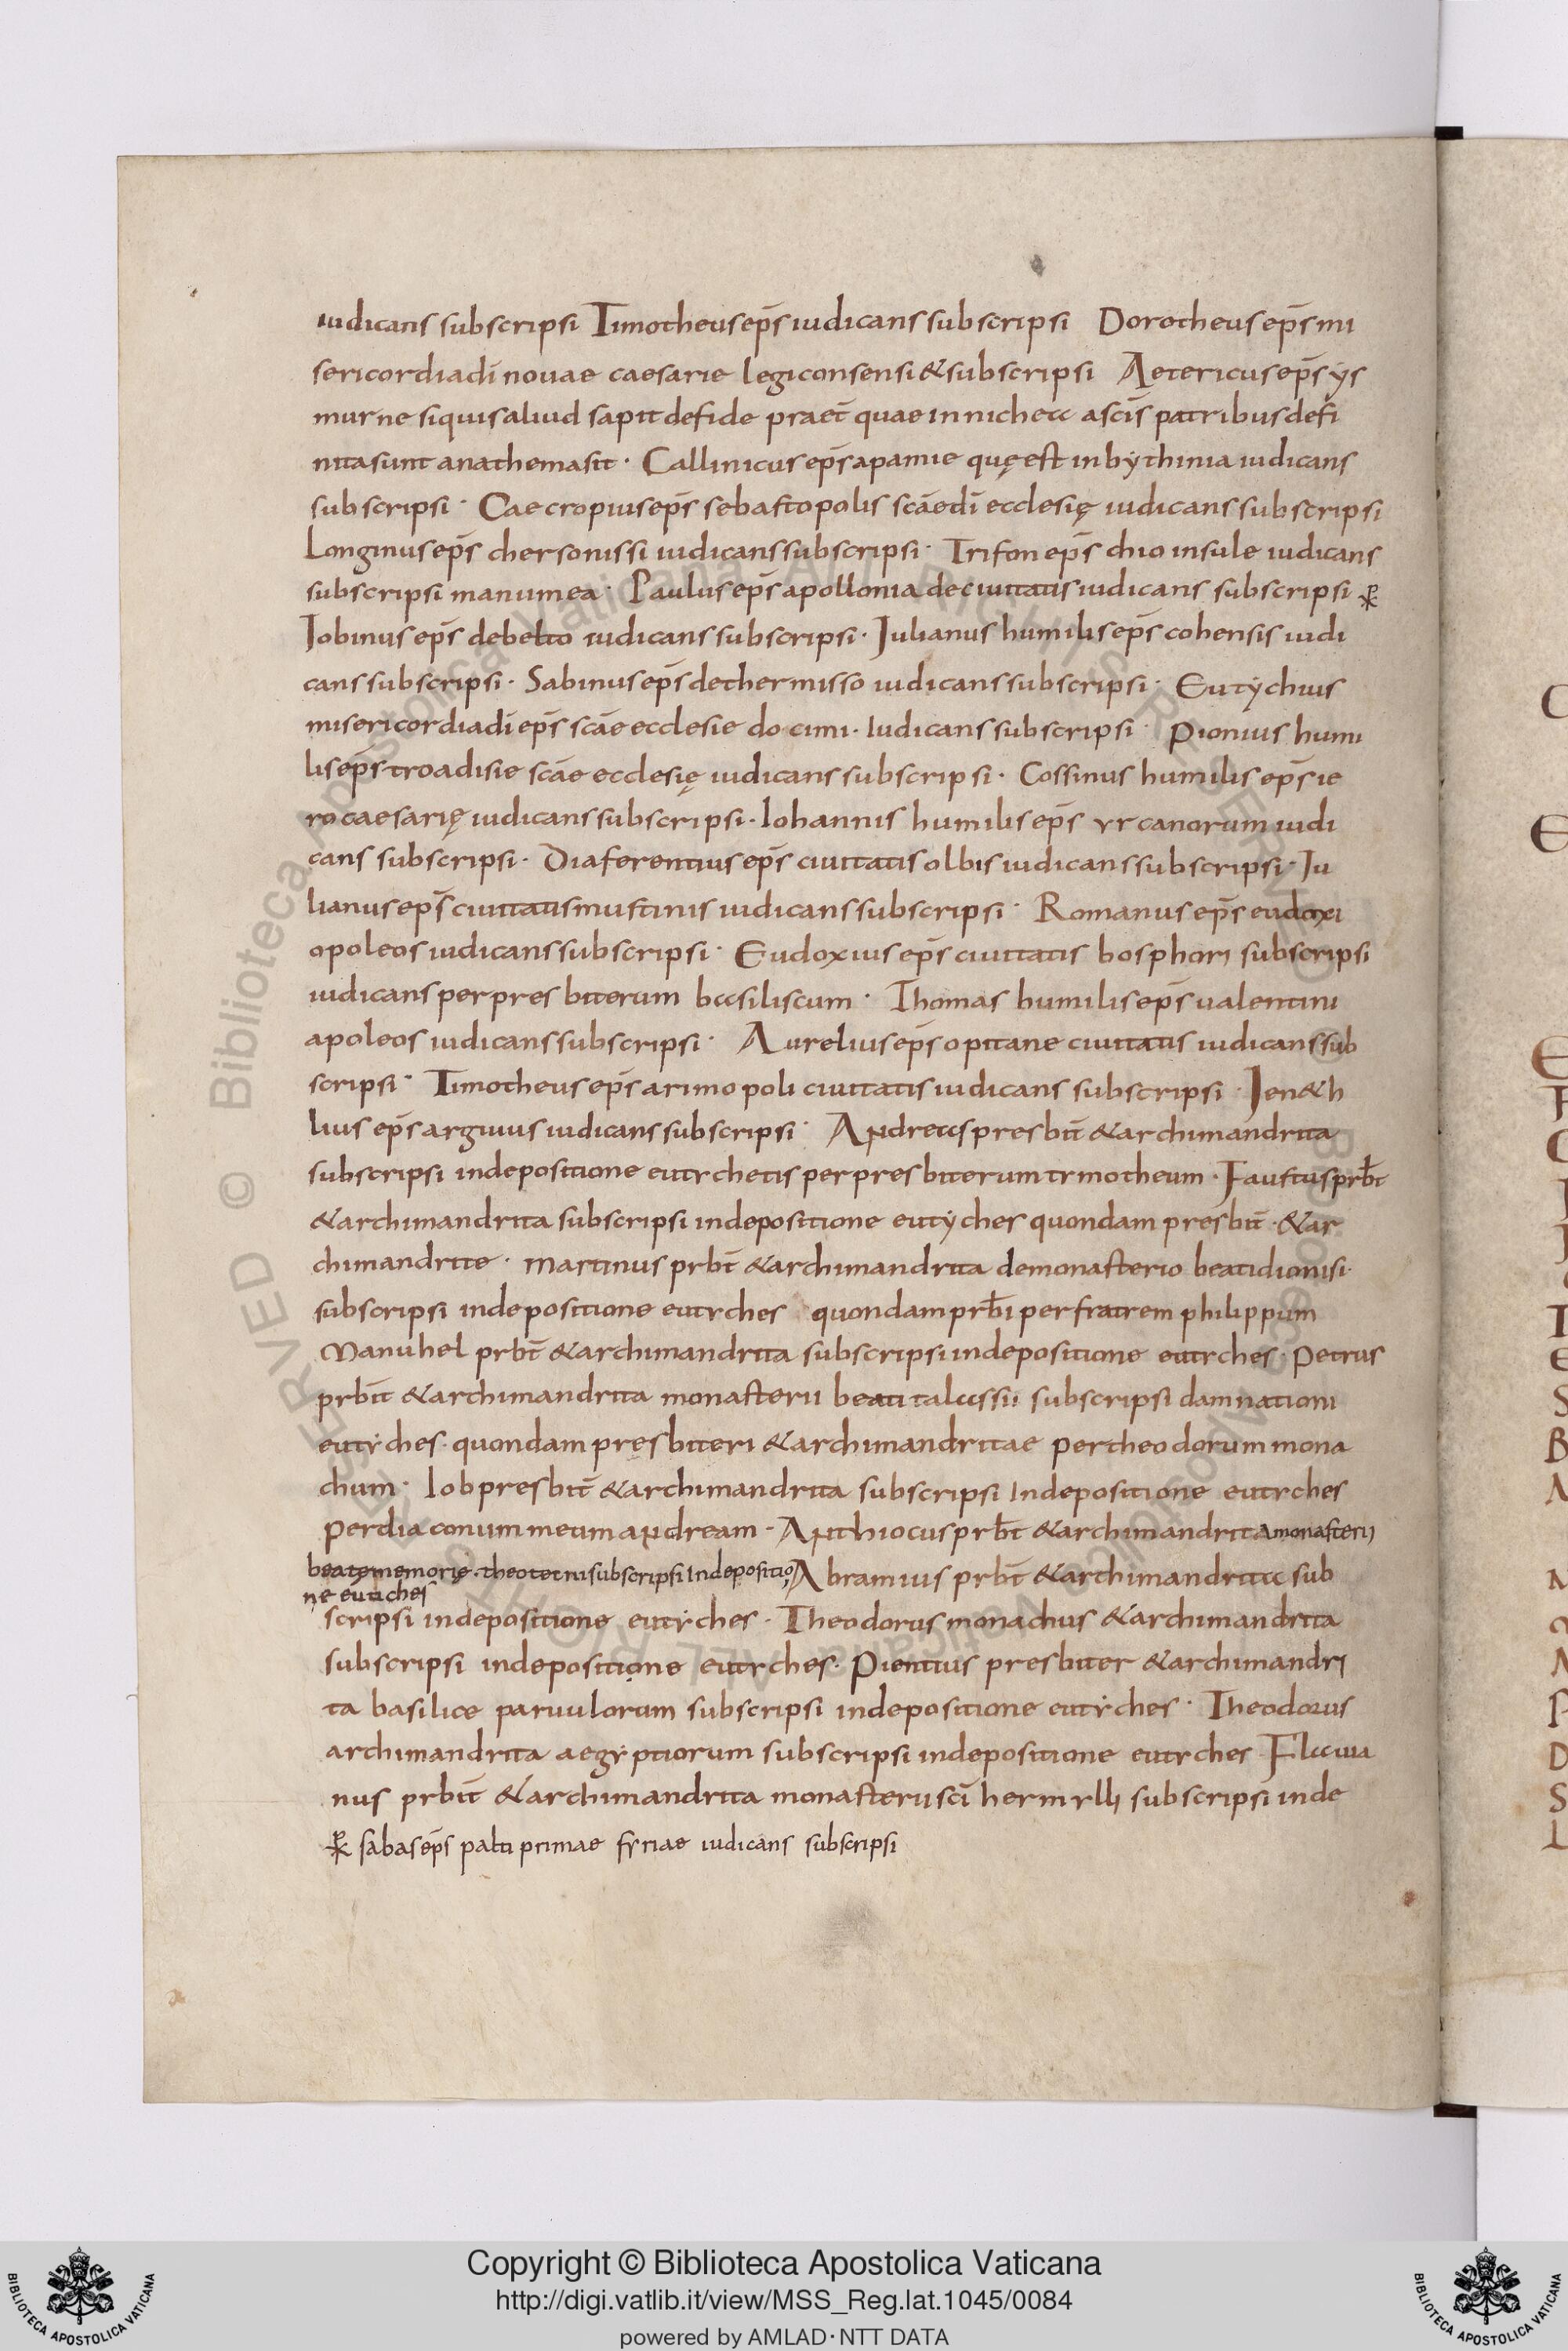 iudicans subscripsi Timotheus ep̄s iudicans subscripsi Dorotheus ep̄s mi
sericordia dī nouae caesarie legi consensi & subscripsi Aetericus ep̄s ys
murne si quis aliud sapit de fide praet̄ quae in nichea a sc̄is patribus defi
nita sunt anathema sit · Callinicus ep̄s apamie quę est in bythinia iudicans
subscripsi · Caecropius ep̄s sebastopolis sc̄ae dī ecclesię iudicans subscripsi
Longinus ep̄s chersonissi iudicans subscripsi · Trifon ep̄s chio insule iudicans
subscripsi manu mea · Paulus ep̄s apollonia de ciuitatis iudicans subscripsi
Iobinus ep̄s debelto iudicans subscripsi · Julianus humilis ep̄s cohensis iudi
cans subscripsi · Sabinus ep̄s dethermisso iudicans subscripsi · Eutychius
misericordia dī ep̄s sc̄ae ecclesie docimi · Iudicans subscripsi · Pionius humi
lis ep̄s troadisie sc̄ae ecclesię iudicans subscripsi · Cossinus humilis ep̄s ie
rocaesarię iudicans subscripsi · Iohannis humilis ep̄s yrcanorum iudi
cans subscripsi · Diaferentius ep̄s ciuitatis olbis iudicans subscripsi · Ju
lianus ep̄s ciuitatis mustinis iudicans subscripsi · Romanus ep̄s eudoxi
opoleos iudicans subscripsi · Eudoxius ep̄s ciuitatis bosphori subscripsi
iudicans per presbiterum basiliscum · Thomas humilis ep̄s ualentini
apoleos iudicans subscripsi · Aurelius ep̄s opitane ciuitatis iudicans sub
scripsi · Timotheus ep̄s arimo poli ciuitatis iudicans subscripsi · Jen&h
lius ep̄s argiuius iudicans subscripsi · Andreas presbit̄ & archimandrita
subscripsi in depositione eutychetis per presbiterum tymotheum · Faustus prb̄t
& archimandrita subscripsi in depositione eutyches quondam presbit̄ · & ar
chimandrite · Martinus prbt̄ & archimandrita de monasterio beati dionisi ·
subscripsi in depositione eutyches quondam prb̄i per fratrem philippum
Manuhel prbt̄ & archimandrita subscripsi in depositione eutyches · Petrus
prbit̄ & archimandrita monasterii beati talassii subscripsi damnationi
eutyches · quondam pręsbiteri & archimandritae per theodorum mona
chum · Iob presbit̄ & archimandrita subscripsi In depositione eutyches
per diaconum meum andream · Anthiocus prb̄t & archimandrita monasterii
beatę memorię · theotecni subscripsi In depositio Abramius prbt̄ & archimandrita sub
ne eutiches
scripsi in depositione eutyches · Theodorus monachus & archimandrita
subscripsi in depositione eutyches · Pientius presbiter & archimandri
ta basilice paruulorum subscripsi in depositione eutyches · Theodorus
archimandrita aegyptiorum subscripsi in depositione eutyches Flauia
nus prbit̄ & archimandrita monasterii sc̄i hermylli subscripsi in de
sabas ep̄s palti primae syriae iudicans subscripsi
Copyright © Biblioteca Apostolica Vaticana
http://digi.vatlib.it/view/MSS_Reg.lat.1045/0084
powered by AMLAD · NTT DATA